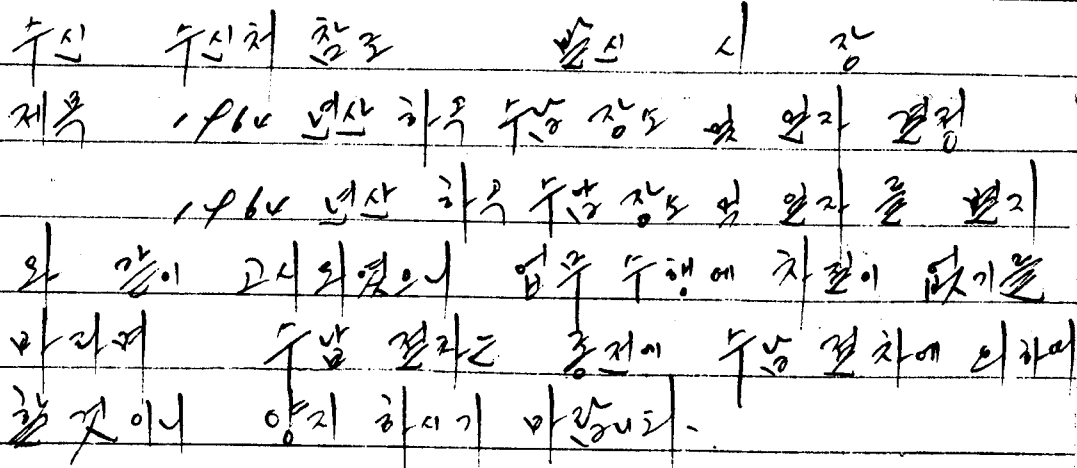 수신 수신처 참조 발신 시 장
제목 1964 년산 하곡 수납 장소 및 일자 결정
1964 년산 하곡 수납 장소 및 일자를 별지
와 같이 고시 되였으니 업무 수행에 차질이 없기를
바라며 수납 절차는 종전에 수납 절차에 의하여
할 것이니 양지 하시기 바랍니다.